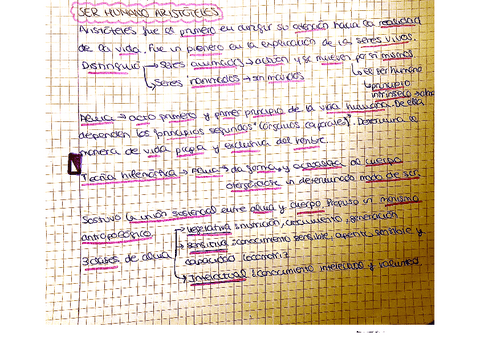 SER HUMANO ARISTÓTELES
Aristóteles fue el primero en dirigir su atención hacia la realidad
de la vida. Fue un pionero en la explicación de los seres vivos.
Distinguió → Seres animados → actúan y se mueven por sí mismos
↳ Seres inanimados → sin móviles
↳ el ser humano
principio
intrínseco →
Alma → acto primero y primer principio de la vida humana. De ella
dependen los principios segundos corporales. Determina la
manera de vida propia y exclusiva del hombre.
Teoría hilemórfica → Alma da forma y capacidad de cuerpo
en determinado modo de ser.
Sostuvo la unión sustancial entre alma y cuerpo. Propuso un monismo
antropológico
3 clases de alma
→ Vegetativa: nutrición, crecimiento, generación
→ Sensitiva: conocimiento sensible, apetito sensible y
capacidad locomotriz
→ Intelectual: conocimiento intelectual y voluntad